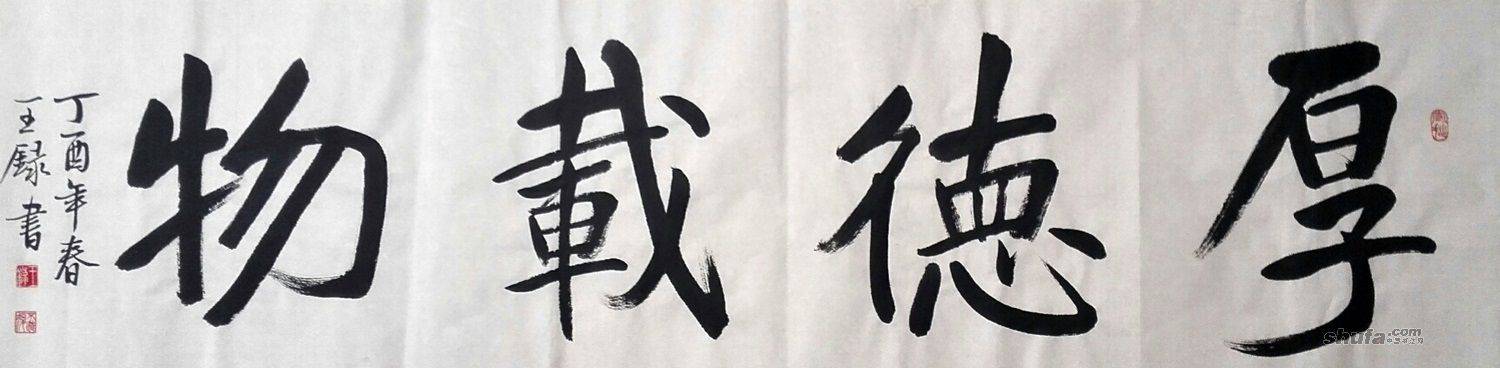 厚德載物
丁酉年春
王録書
shufa.com